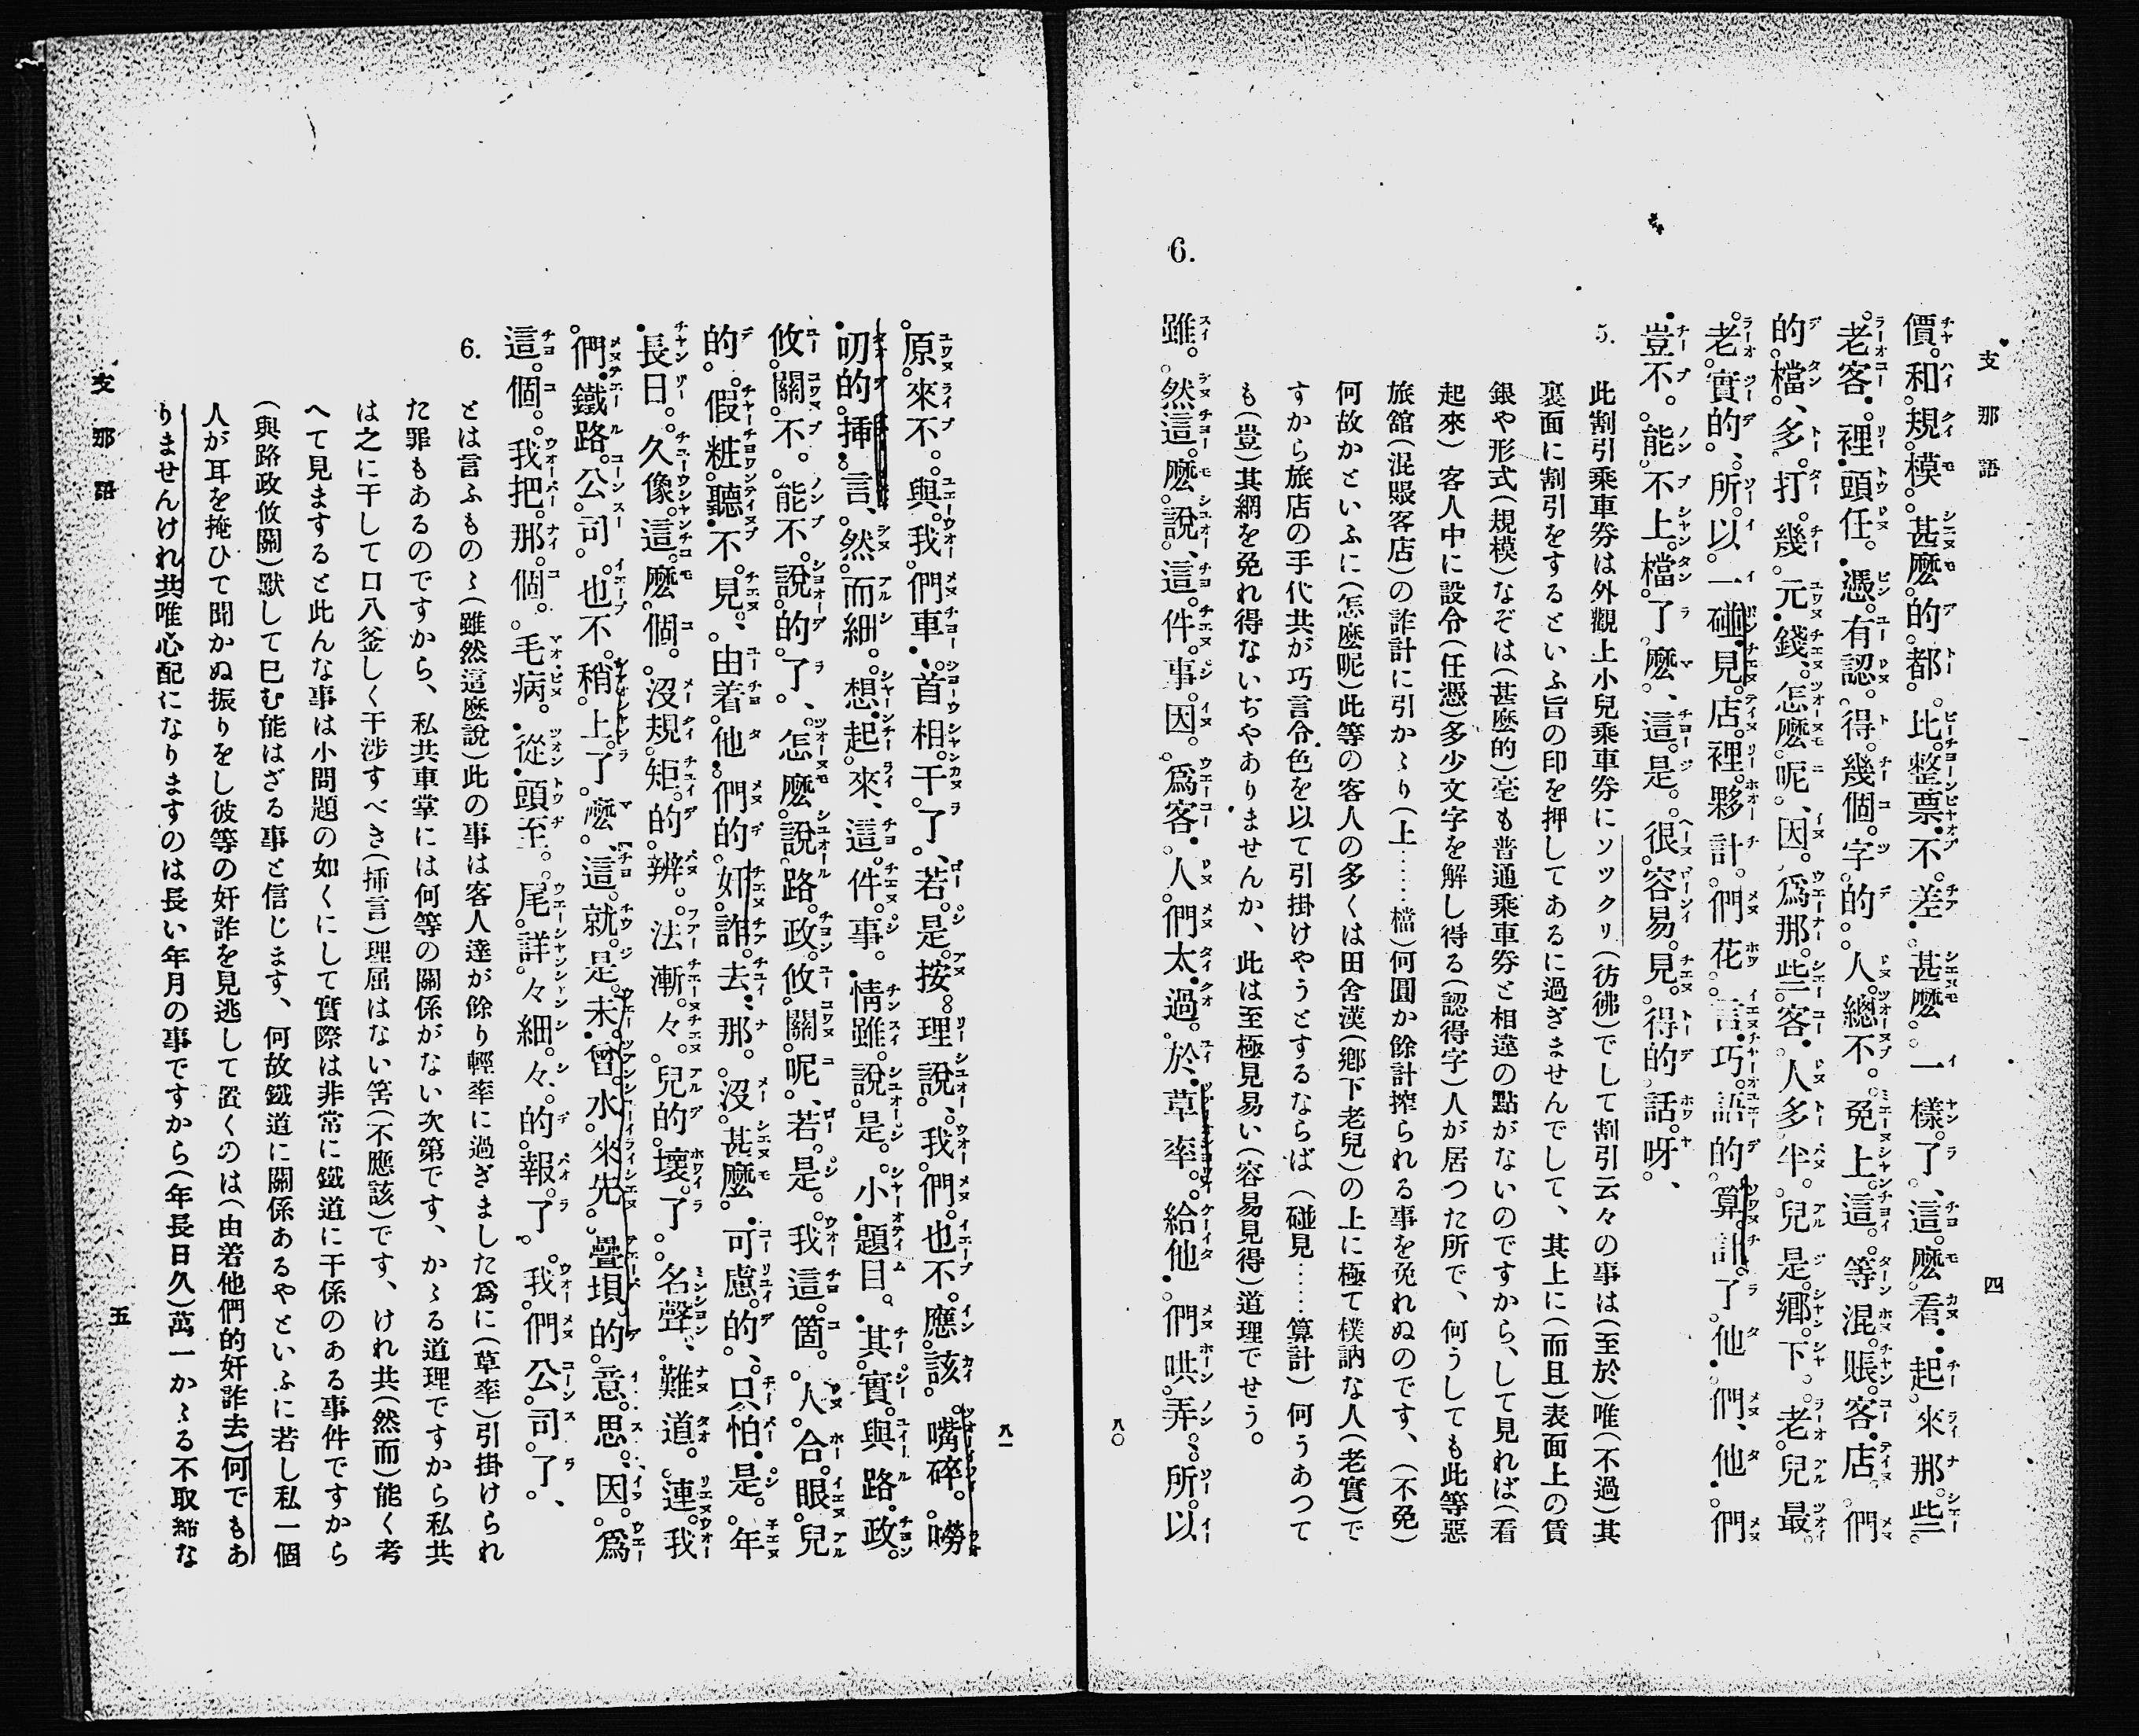 支那語
四
價和規模甚麽的都此整票不差甚麽一樣了、這麽看起來那些
老客裡頭任憑有認得幾個字的人總不免上這等混賬客店們
的檔、多打幾元錢、怎麽呢、因爲那些客人多半兒是鄉下老兒最
老實的、所以一碰見店裡夥計們花言巧語的算計了他們、他們
豈不能不上檔了麽、這是很容易見得的話呀、
5.
此割引乘車券は外觀上小兒乘車券にソックリ(彷彿)でして割引云々の事は(至於)唯(不過)其
裏面に割引をするといふ旨の印を押してあるに過ぎませんでして、其上に(而且)表面上の賃
銀や形式(規模)なぞは(甚麽的)毫も普通乘車券と相違の點がないのですから、して見れば(看
起來)客人中に設令(任憑)多少文字を解し得る(認得字)人が居つた所で、何うしても此等惡
旅舘(混賬客店)の詐計に引かゝり(上……檔)何圓か餘計搾られる事を免れぬのです、(不免)
何故かといふに(怎麽呢)此等の客人の多くは田舍漢(鄉下老兒)の上に極て樸訥な人(老實)で
すから旅店の手代共が巧言令色を以て引掛けやうとするならば(碰見……算計)何うあつて
も(豈)其網を免れ得ないぢやありませんか、此は至極見易い(容易見得)道理でせう。
6.
雖然這麽說、這件事因爲客人們太過於草率給他們哄弄、所以
八〇
八一
原來不與我們車、首相干了、若是按理說、我們也不應該嘴碎嘮
叨的揷言、然而細想起來、這件事情雖說是小題目其實與路政
攸關不能不說的了、怎麽說路政攸關呢、若是我這箇人合眼兒
的假粧聽不見、由着他們的奸詐去、那沒甚麽可慮的、只怕是年
長日久像這麽個沒規矩的辨法漸々兒的壞了名聲、難道連我
們鐵路公司也不稍上了麽、這就是未曾水來先疊垻的意思、因爲
這個我把那個毛病從頭至尾詳々細々的報了我們公司了、
6.
とは言ふものゝ(雖然這麽說)此の事は客人達が餘り輕率に過ぎました爲に(草率)引掛けられ
た罪もあるのですから、私共車掌には何等の關係がない次第です、かゝる道理ですから私共
は之に干して口八釜しく干涉すべき(揷言)理屈はない筈(不應該)です、けれ共(然而)能く考
へて見ますると此んな事は小問題の如くにして實際は非常に鐵道に干係のある事件ですから
(與路政攸關)默して巳む能はざる事と信じます、何故鐵道に關係あるやといふに若し私一個
人が耳を掩ひて聞かぬ振りをし彼等の奸詐を見逃して置くのは(由着他們的奸詐去)何でもあ
りませんけれ共唯心配になりますのは長い年月の事ですから(年長日久)萬一かゝる不取締な
支那語
五